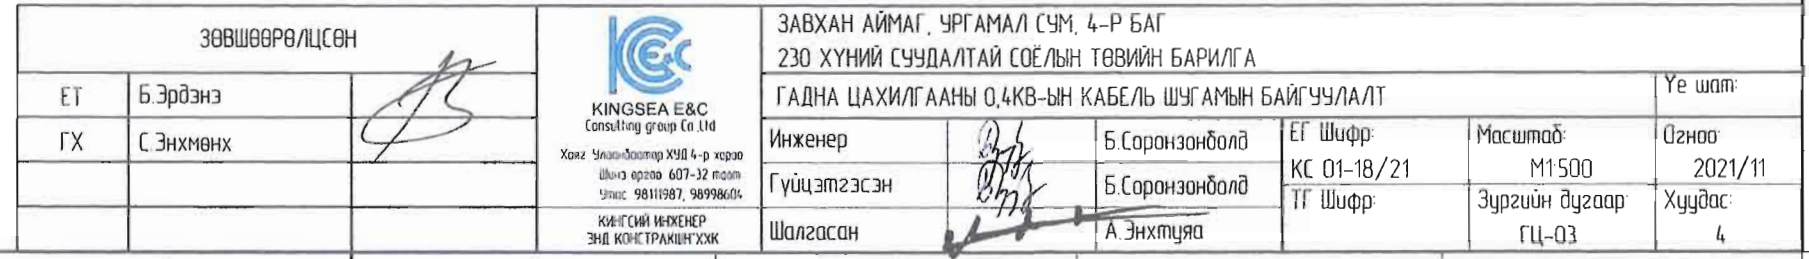 ЗӨВШӨӨРӨЛЦСӨН
ЕТ Б.Эрдэнэ
ГХ С.Энхмөнх
KINGSEA E&C
Consulting group Co.,Ltd
Хаяг Улаанбаатар ХУД 4-р хороо
607-32 тоот
Утас 98111987, 98998604
КИНГСИЙ ИНЖЕНЕР
ЭНД КОНСТРАКШН ХХК
ЗАВХАН АЙМАГ, УРГАМАЛ СУМ, 4-Р БАГ
230 ХҮНИЙ СУУДАЛТАЙ СОЁЛЫН ТӨВИЙН БАРИЛГА
ГАДНА ЦАХИЛГААНЫ 0,4КВ-ЫН КАБЕЛЬ ШУГАМЫН БАЙГУУЛАЛТ
Үе шат:
Инженер Б.Соронзонболд
Гүйцэтгэсэн Б.Соронзонболд
Шалгасан А.Энхтуяа
ЕГ Шифр:
КС 01-18/21
ТГ Шифр:
Масштаб:
М1:500
Зургийн дугаар:
ГЦ-03
Огноо:
2021/11
Хуудас:
4